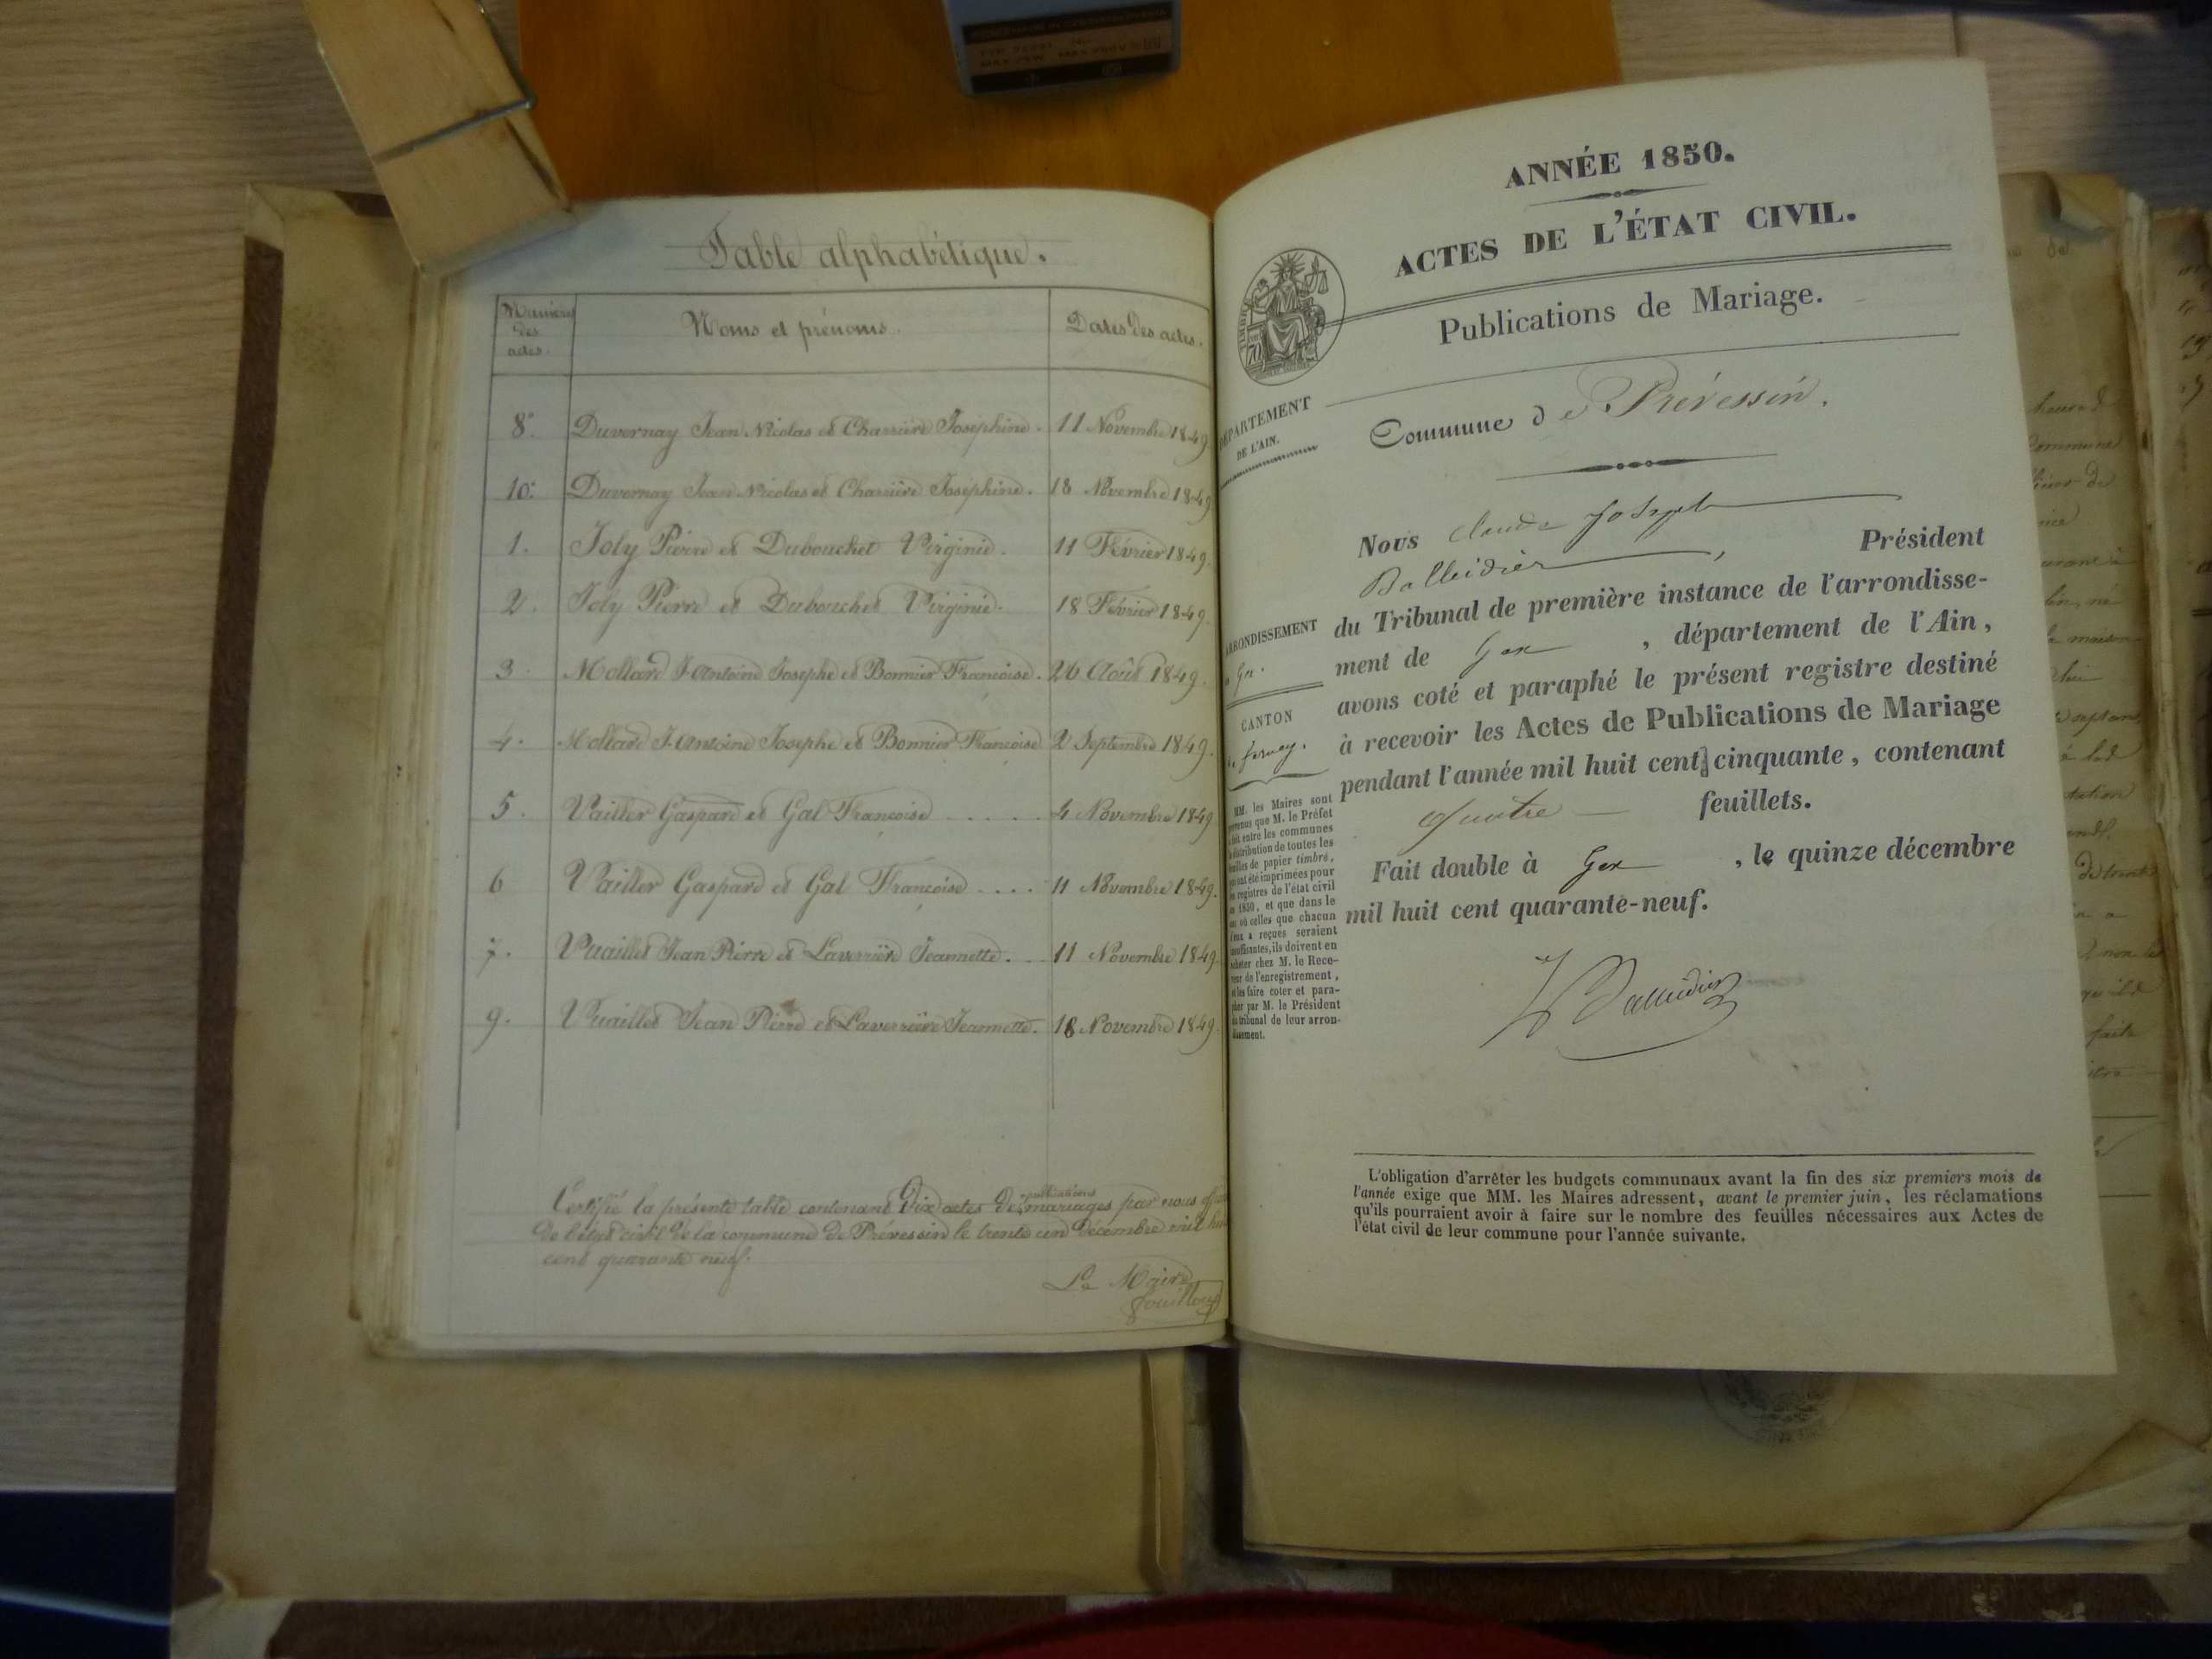 Table alphabétique.
Numéros des actes. Noms et prénoms. Dates des actes.
8. Duvernay Jean Nicolas et Charrière Josephine. 11 Novembre 1849
10. Duvernay Jean Nicolas et Charrière Josephine. 18 Novembre 1849
1. Joly Pierre et Dubouchet Virginie. 11 Février 1849.
2. Joly Pierre et Dubouchet Virginie. 18 Février 1849.
3. Mollard J. Antoine Josephe et Bonnier Françoise. 26 Août 1849.
4. Mollard J. Antoine Josephe et Bonnier Françoise 2 Septembre 1849.
5. Vailler Gaspard et Gal Françoise ..... 4 Novembre 1849
6 Vailler Gaspard et Gal Françoise .... 11 Novembre 1849.
7. Vuaillet Jean Pierre et Laverrière Jeannette. 11 Novembre 1849
9. Vuaillet Jean Pierre et Laverrière Jeannette. 18 Novembre 1849
Certifié la présente table contenant Dix actes de publications mariages par nous
de l'état civil de la commune de Prévessin le trente un Décembre mil huit
cent quarante neuf.
Le Maire
ANNÉE 1850.
ACTES DE L'ÉTAT CIVIL.
Publications de Mariage.
DÉPARTEMENT
DE L'AIN.
Commune de Prévessin.
Nous Claude Joseph
Balleidier, Président
du Tribunal de première instance de l'arrondisse-
ment de Gex, département de l'Ain,
avons coté et paraphé le présent registre destiné
à recevoir les Actes de Publications de Mariage
pendant l'année mil huit cent cinquante, contenant
quatre feuillets.
Fait double à Gex, le quinze décembre
mil huit cent quarante-neuf.
Balleidier
ARRONDISSEMENT
Gex.
CANTON
Ferney.
MM. les Maires sont
prévenus que M. le Préfet
fait entre les communes
la distribution de toutes les
feuilles de papier timbré,
qui ont été imprimées pour
les registres de l'état civil
en 1850, et que dans le
cas où celles que chacun
d'eux a reçues seraient
insuffisantes, ils doivent en
acheter chez M. le Rece-
veur de l'enregistrement,
et les faire coter et para-
pher par M. le Président
du tribunal de leur arron-
dissement.
L'obligation d'arrêter les budgets communaux avant la fin des six premiers mois de
l'année exige que MM. les Maires adressent, avant le premier juin, les réclamations
qu'ils pourraient avoir à faire sur le nombre des feuilles nécessaires aux Actes de
l'état civil de leur commune pour l'année suivante.